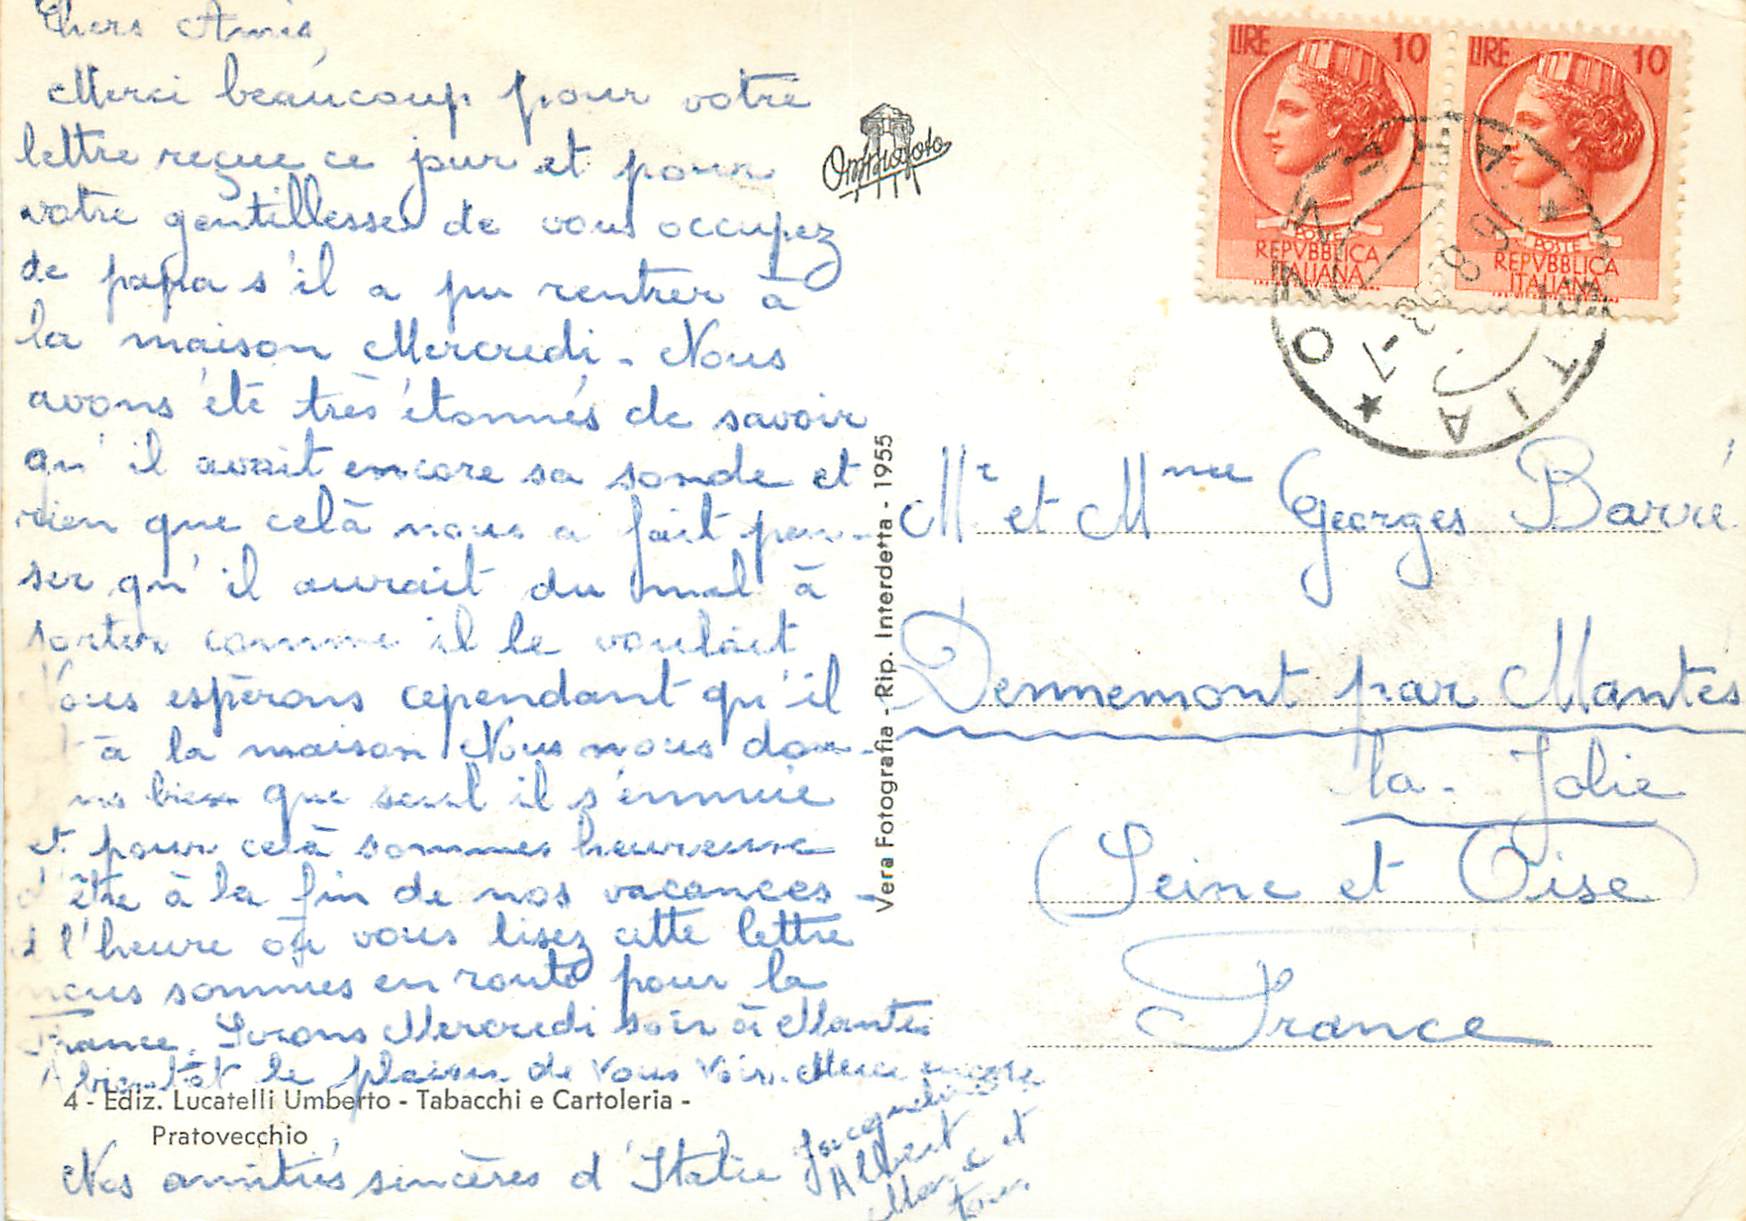 Chers Amis,
Merci beaucoup pour votre
lettre reçue ce jour et pour
votre gentillesse de vous occupez
de papa s'il a pu rentrer à
la maison Mercredi - Nous
avons été très étonnés de savoir
qu'il avait encore sa sonde et
rien que celà nous a fait pen-
ser qu'il aurait du mal à
sortir comme il le voulait
Nous espérons cependant qu'il
à la maison Nous nous dou-
ns bien que seul il s'ennuie
et pour celà sommes heureuse
d'être à la fin de nos vacances -
à l'heure où vous lisez cette lettre
nous sommes en route pour la
France. Serons Mercredi soir à Mantes
A bientôt le plaisir de vous voir. Merci encore
4 - Ediz. Lucatelli Umberto - Tabacchi e Cartoleria -
Pratovecchio
Nos amitiés sincères d'Italie
Jacqueline
Albert
et
Omniafoto
Vera Fotografia - Rip. Interdetta - 1955
LIRE 10
POSTE
REPVBBLICA
ITALIANA
LIRE 10
POSTE
REPVBBLICA
ITALIANA
Mr et Mme Georges Barré
Dennemont par Mantes
la - Jolie
Seine et Oise
France